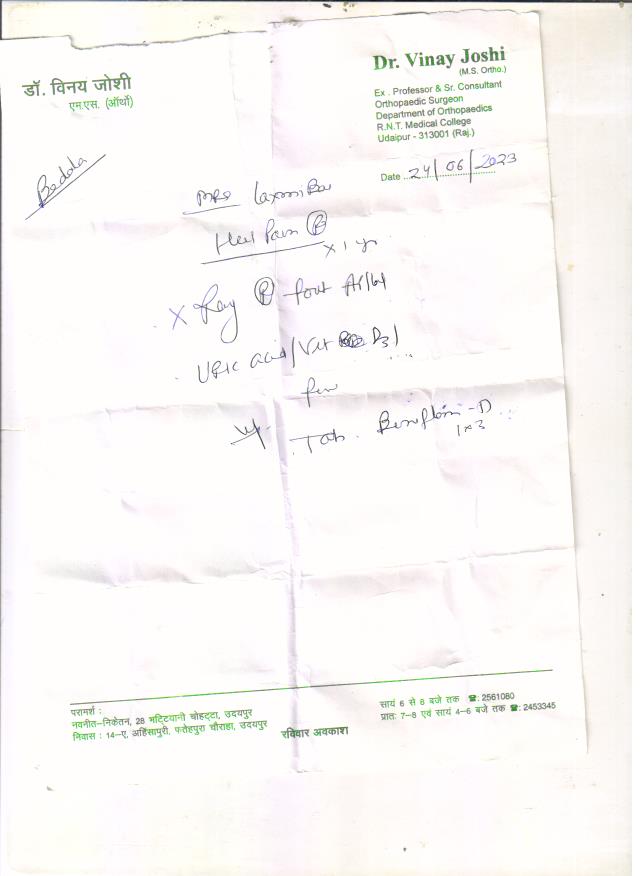 डॉ. विनय जोशी
एम.एस. (ऑर्थो)
Dr. Vinay Joshi
(M.S. Ortho.)
Ex . Professor & Sr. Consultant
Orthopaedic Surgeon
Department of Orthopaedics
R.N.T. Medical College
Udaipur - 313001 (Raj.)
Date 24/06/2023
Bedola
Mrs Laxmi Bai
Heel Pain Ⓡ
x 1 yr
X Ray Ⓡ foot AP/Lat
Uric acid/Vit D3/
Tab. -D
1x3
परामर्श :
नवनीत–निकेतन, 28 भट्टियानी चोहट्टा, उदयपुर
निवास : 14–ए, अहिंसापुरी, फतेहपुरा चौराहा, उदयपुर
रविवार अवकाश
सायं 6 से 8 बजे तक ☎: 2561080
प्रातः 7–8 एवं सायं 4–6 बजे तक ☎: 2453345